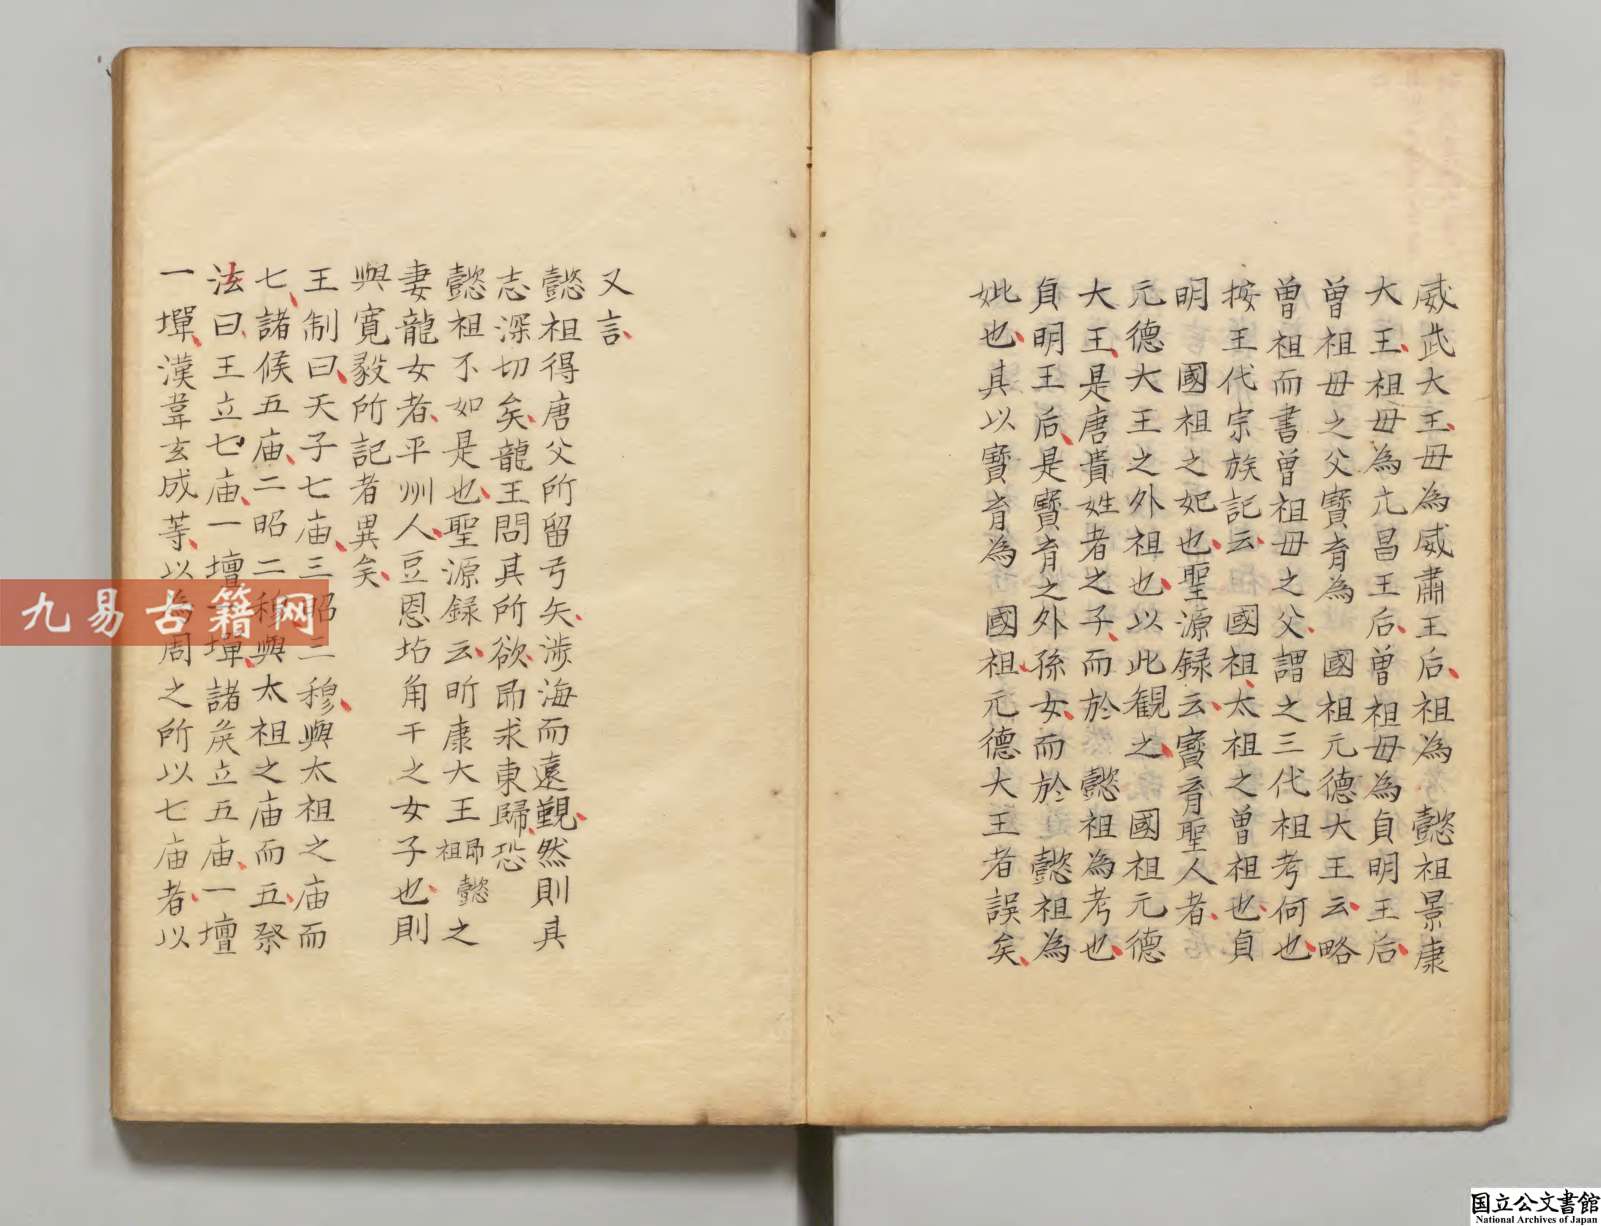 威武大王母為威肅王后祖為　懿祖景康
大王祖母為元昌王后曽祖母為貞明王后
曽祖母之父寶育為　國祖元德大王云略
曽祖而書曽祖母之父謂之三代祖考何也
按王代宗族記云　國祖太祖之曽祖也貞
明　國祖之妃也聖源録云寶育聖人者
元德大王之外祖也以此観之　國祖元德
大王是唐貴姓者之子而於　懿祖為考也
貞明王后是寶育之外孫女而於　懿祖為
妣也其以寶育為　國祖元德大王者誤矣
又言
懿祖得唐父所留弓矢涉海而遠覲然則其
志深切矣龍王問其所欲即求東歸恐
懿祖不如是也聖源録云昕康大王即懿祖之
妻龍女者平州人豆恩坫角干之女子也則
與寛毅所記者異矣
王制曰天子七庙三昭三穆與太祖之庙而
七諸侯五庙二昭二穆與太祖之庙而五祭
法曰王立七庙一壇一墠諸侯立五庙一壇
一墠漢韋玄成等以為周之所以七庙者以
九易古籍网
国立公文書館
National Archives of Japan